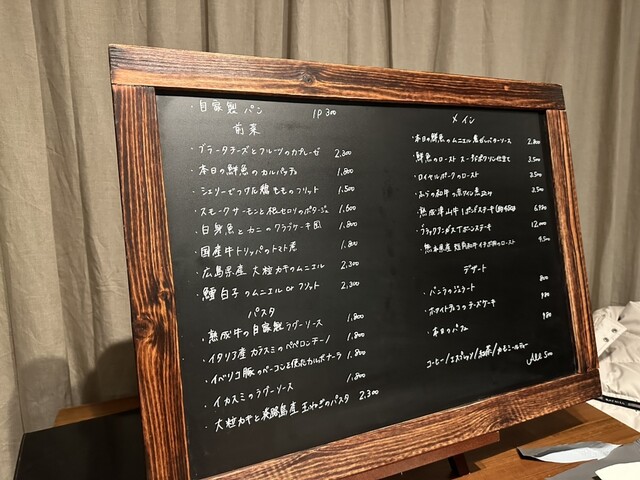 ・自家製パン 1P 300
前菜
・ブラータチーズとフルーツのカプレーゼ 2.300
・本日の鮮魚のカルパッチョ 1.800
・シェリーでつけた鶏もものフリット 1.500
・スモークサーモンと根セロリのポタージュ 1.600
・白身魚とカニのクラブケーキ風 1.800
・国産牛トリッパのトマト煮 1.800
・広島県産 大粒カキのムニエル 2.300
・鱈白子のムニエル or フリット 2.300
パスタ
・熟成牛の自家製ラグーソース 1,800
・イタリア産カラスミのペペロンチーノ 1,800
・イベリコ豚のベーコンを使たカルボナーラ 1,800
・イカスミのラグーソース 1,800
・大粒カキと淡路島産玉ねぎのパスタ 2.300
メイン
・本日の鮮魚のムニエル 焦がしバターソース 2.800
・鮮魚のロースト スープ仕立て 3.500
・ロイヤルポークのロースト 3.500
・の和牛の赤ワイン煮込み 3.500
・熟成津山牛1ポンドステーキ 6.980
・ブラックアンガスTボーンステーキ 12.000
・熊本県産 和牛イチボのロースト 4.500
デザート
・バニラのジェラート 800
・ホワイトチョコのチーズケーキ 980
・本日のパフェ 980
コーヒー/エスプレッソ/紅茶/カモミールティー All 500